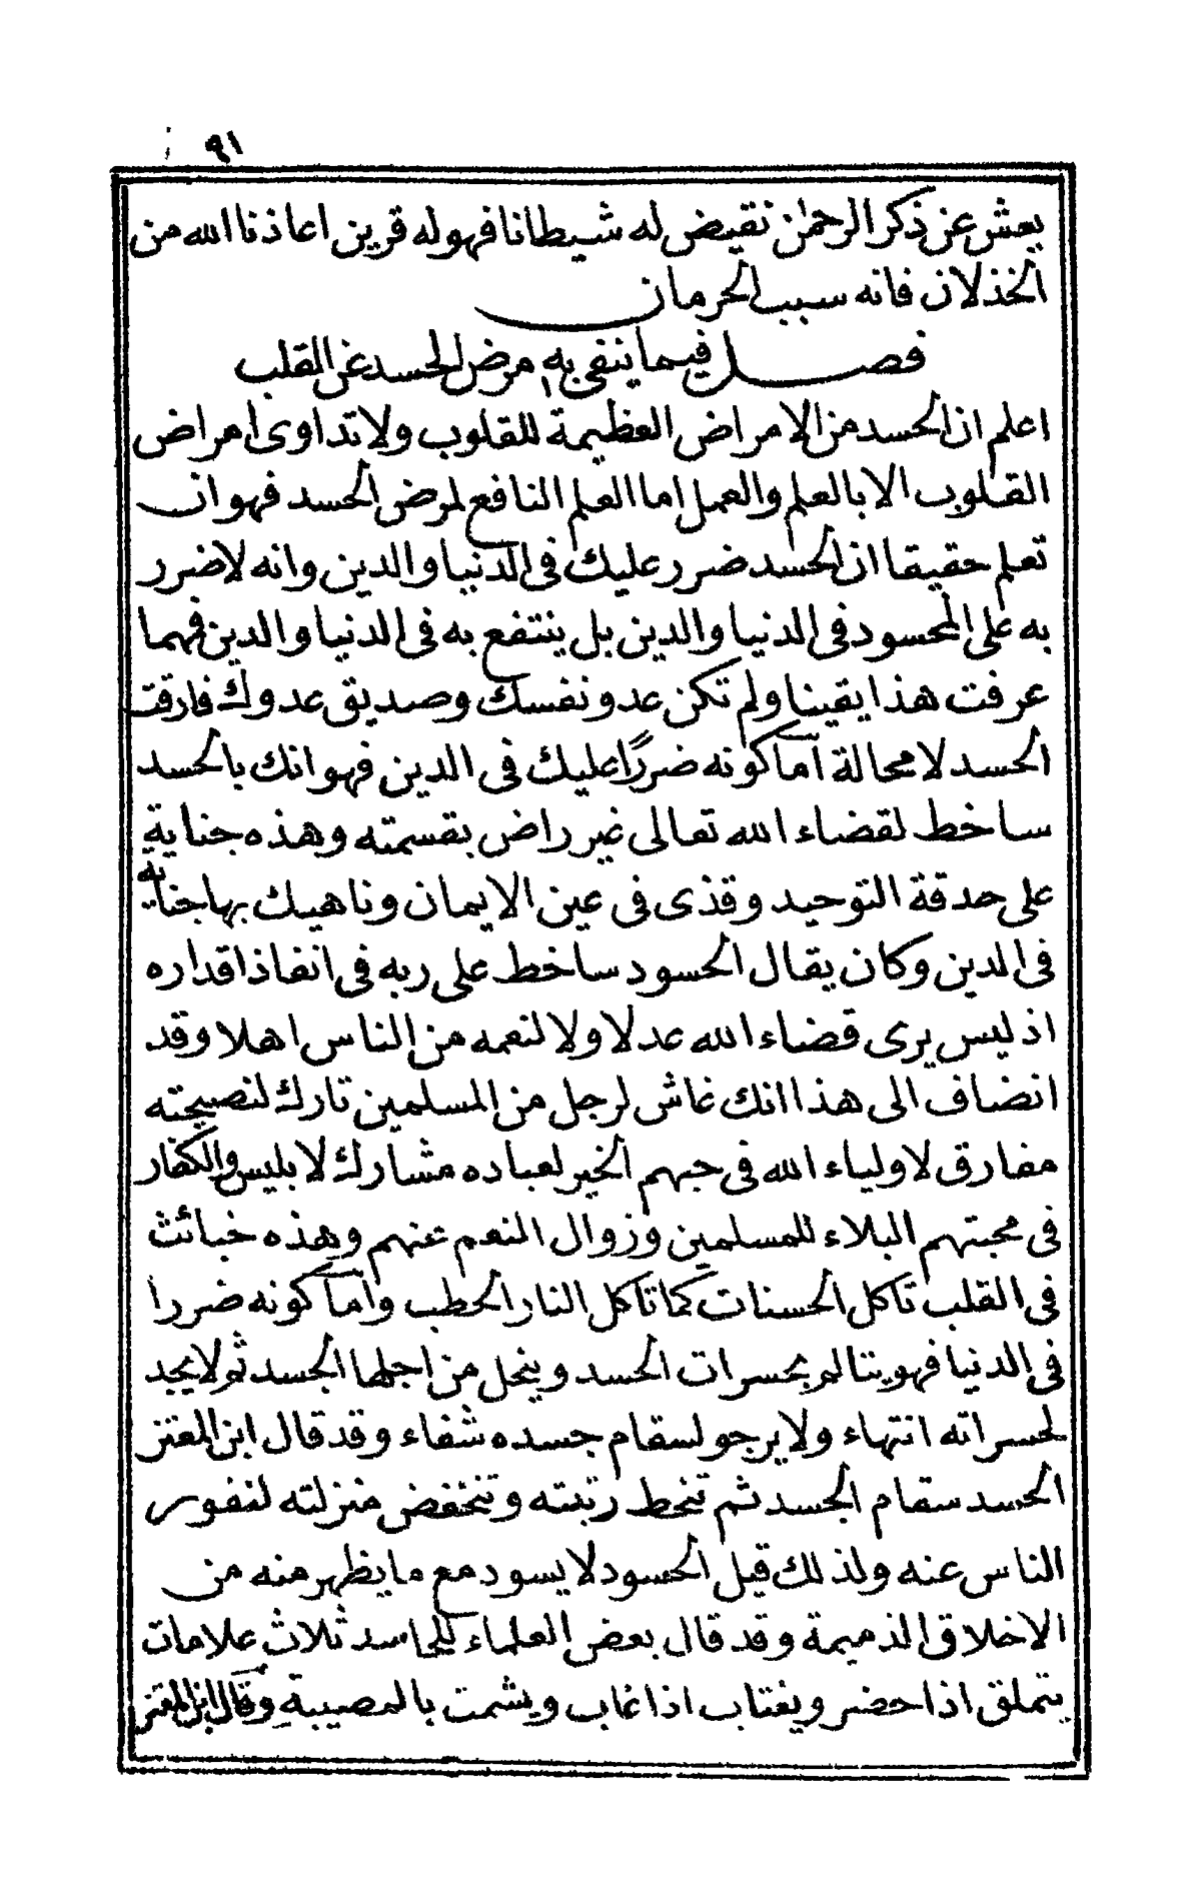 ٩١
يعش عن ذكر الرحمن نقيض له شيطانا فهو له قرين اعاذنا الله من
الخذلان فانه سبب الحرمان
فصل فيما ينفى به مرض الحسد عن القلب
اعلم ان الحسد من الامراض العظيمة للقلوب ولا تداوى امراض
القلوب الا بالعلم والعمل اما العلم النافع لمرض الحسد فهو ان
تعلم حقيقا ان الحسد ضرر عليك فى الدنيا والدين وانه لا ضرر
به على المحسود فى الدنيا والدين بل ينتفع به فى الدنيا والدين فهما
عرفت هذا يقينا ولم تكن عدو نفسك وصديق عدوك فارقت
الحسد لا محالة اما كونه ضررًا عليك فى الدين فهو انك بالحسد
ساخط لقضاء الله تعالى غير راض بقسمته وهذه جناية
على حدقة التوحيد وقذى فى عين الايمان وناهيك بها جناية
فى الدين وكان يقال الحسود ساخط على ربه فى انفاذ اقداره
اذ ليس يرى قضاء الله عدلا ولا لنعمه من الناس اهلا وقد
انضاف الى هذا انك غاش لرجل من المسلمين تارك لنصيحته
مفارق لاولياء الله فى حبهم الخير لعباده مشارك لابليس والكفار
فى محبتهم البلاء للمسلمين وزوال النعم عنهم وهذه خبائث
فى القلب تاكل الحسنات كما تاكل النار الحطب واما كونه ضررا
فى الدنيا فهو يتالم بحسرات الحسد وينحل من اجلها الجسد ثم لا يجد
لحسراته انتهاء ولا يرجو لسقام جسده شفاء وقد قال ابن المعتز
الحسد سقام الجسد ثم تنحط رتبته وتنخفض منزلته لنفور
الناس عنه ولذلك قيل الحسود لا يسود مع ما يظهر منه من
الاخلاق الذميمة وقد قال بعض العلماء للحاسد ثلاث علامات
يتملق اذا حضر ويغتاب اذا غاب ويشمت بالمصيبة وقال ابن المعتز